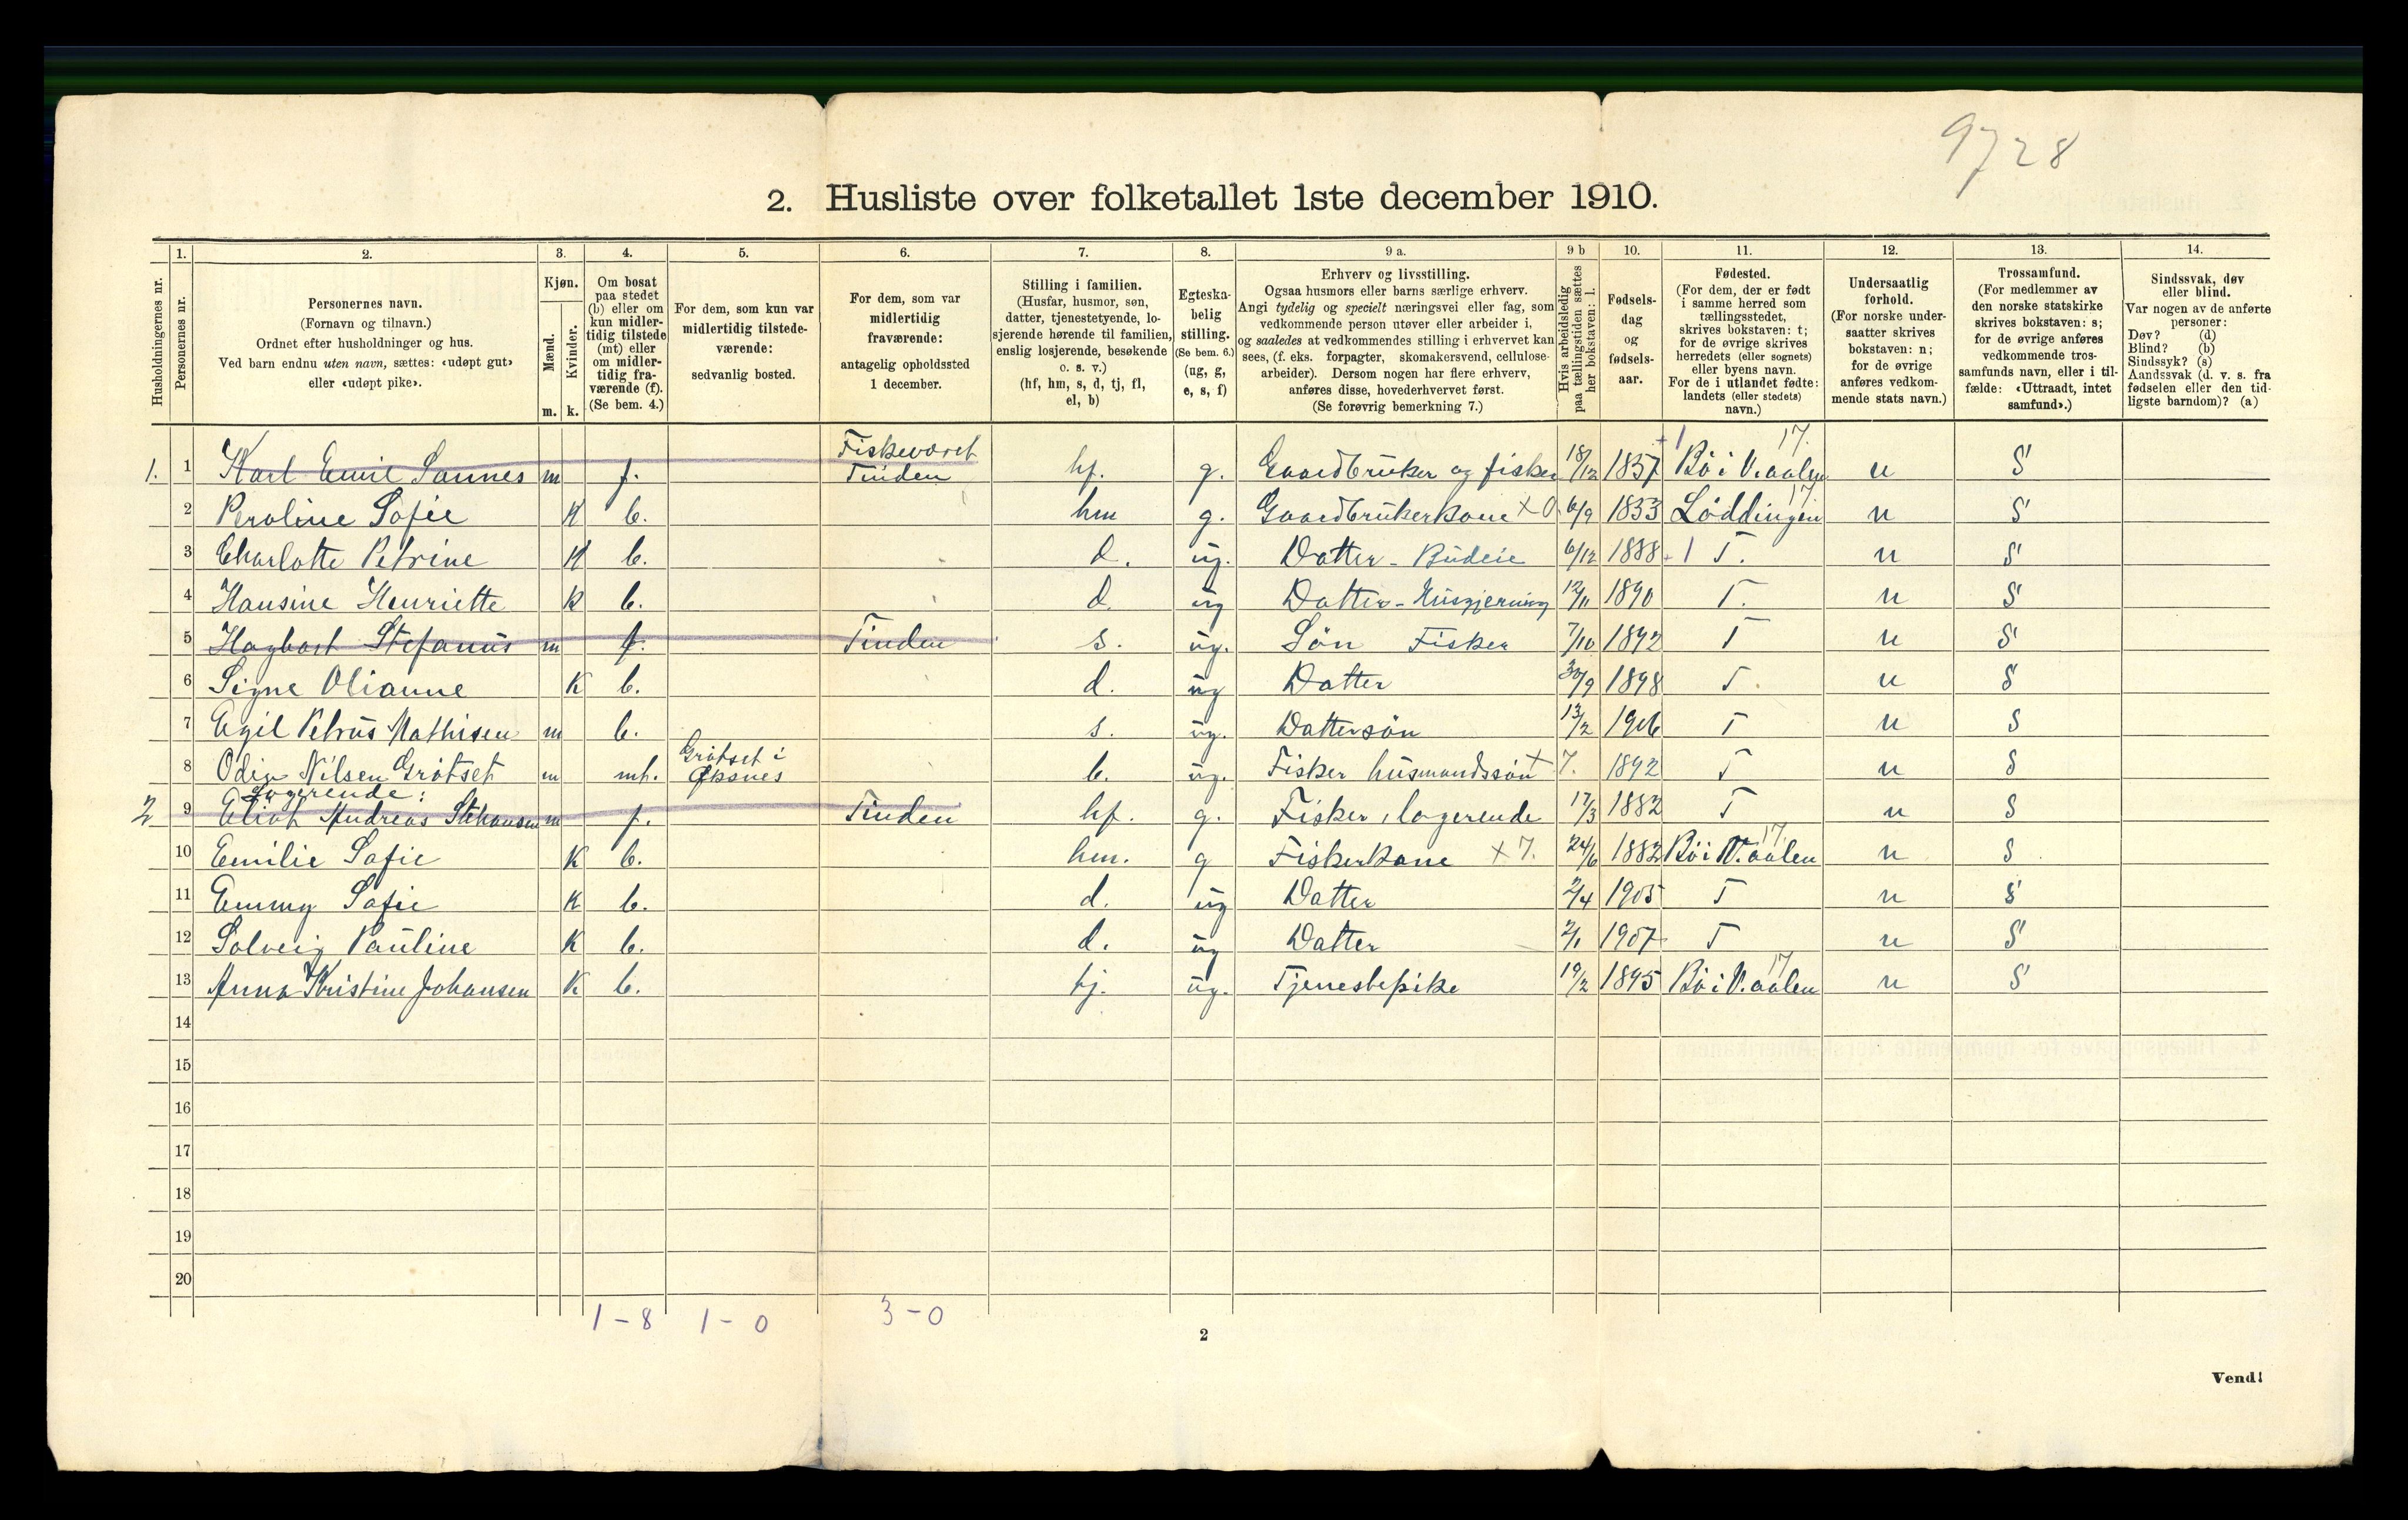 9728
2. Husliste over folketallet 1ste december 1910.
Husholdningernes nr.
1. Personernes nr.
2. Personernes navn.
(Fornavn og tilnavn.)
Ordnet efter husholdninger og hus.
Ved barn endnu uten navn, sættes: «udøpt gut»
eller «udøpt pike».
3. Kjøn.
Mænd. m.
Kvinder. k.
4. Om bosat
paa stedet
(b) eller om
kun midler-
tidig tilstede
(mt) eller
om midler-
tidig fra-
værende (f).
(Se bem. 4.)
5. For dem, som kun var
midlertidig tilstede-
værende:
sedvanlig bosted.
6. For dem, som var
midlertidig
fraværende:
antagelig opholdssted
1 december.
7. Stilling i familien.
(Husfar, husmor, søn,
datter, tjenestetyende, lo-
sjerende hørende til familien,
enslig losjerende, besøkende
o. s. v.)
(hf, hm, s, d, tj, fl,
el, b)
8. Egteska-
belig
stilling.
(Se bem. 6.)
(ug, g,
e, s, f)
9 a. Erhverv og livsstilling.
Ogsaa husmors eller barns særlige erhverv.
Angi tydelig og specielt næringsvei eller fag, som
vedkommende person utøver eller arbeider i,
og saaledes at vedkommendes stilling i erhvervet kan
sees, (f. eks. forpagter, skomakersvend, cellulose-
arbeider). Dersom nogen har flere erhverv,
anføres disse, hovederhvervet først.
(Se forøvrig bemerkning 7.)
9 b Hvis arbeidsledig
paa tællingstiden sættes
her bokstaven: l.
10. Fødsels-
dag
og
fødsels-
aar.
11. Fødested.
(For dem, der er født
i samme herred som
tællingsstedet,
skrives bokstaven: t;
for de øvrige skrives
herredets (eller sognets)
eller byens navn.
For de i utlandet fødte:
landets (eller stedets)
navn.)
12. Undersaatlig
forhold.
(For norske under-
saatter skrives
bokstaven: n;
for de øvrige
anføres vedkom-
mende stats navn.)
13. Trossamfund.
(For medlemmer av
den norske statskirke
skrives bokstaven: s;
for de øvrige anføres
vedkommende tros-
samfunds navn, eller i til-
fælde: «Uttraadt, intet
samfund».)
14. Sindssvak, døv
eller blind.
Var nogen av de anførte
personer:
Døv? (d)
Blind? (b)
Sindssyk? (s)
Aandssvak (d. v. s. fra
fødselen eller den tid-
ligste barndom)? (a)
1. 1 Karl Emil Sannes m f. Fiskeværet Tinden hf. g. Gaardbruker og fisker 18/12 1857 + 1 Bø i V.aalen 17. n S
2 Peroline Sofie K b. hm g. Gaardbrukerkone x 0. 6/9 1853 Løddingen 17. n S
3 Charlotte Petrine K b. d. ug. Datter - Budeie 6/12 1888 - 1 T. n S
4 Hansine Henriette K b. d. ug Datter - Husgjerning 12/11 1890 T. n S
5 Hagbart Stefanus m f. Tinden s. ug. Søn Fisker 7/10 1892 T n S
6 Signe Olianne K b. d. ug Datter 30/9 1898 T. n S
7 Egil Petrus Mathisen m b. s. ug. Dattersøn 13/2 1906 T n S
8 Odin Nilsen Grøtset m mt. Grøtset i Øksnes b. ug. Fisker husmandssøn x 7. 1892 T n S
Logerende:
2 9 Eliot Andreas Stihansen m f. Tinden hf. g. Fisker, logerende 17/3 1882 T n S
10 Emilie Sofie K b. hm. g Fiskerkone x 7. 24/6 1882 Bø i V.aalen 17. n S
11 Emmy Sofie K b. d. ug Datter 2/4 1905 T n S
12 Solveig Pauline K b. d. ug Datter 2/1 1907 T n S
13 Anna Kristine Johansen K b. tj. ug. Tjenestepike 19/2 1895 Bø i V.aalen 17 n S
14
15
16
17
18
19
20
1 - 8 1 - 0 3 - 0
2
Vend!